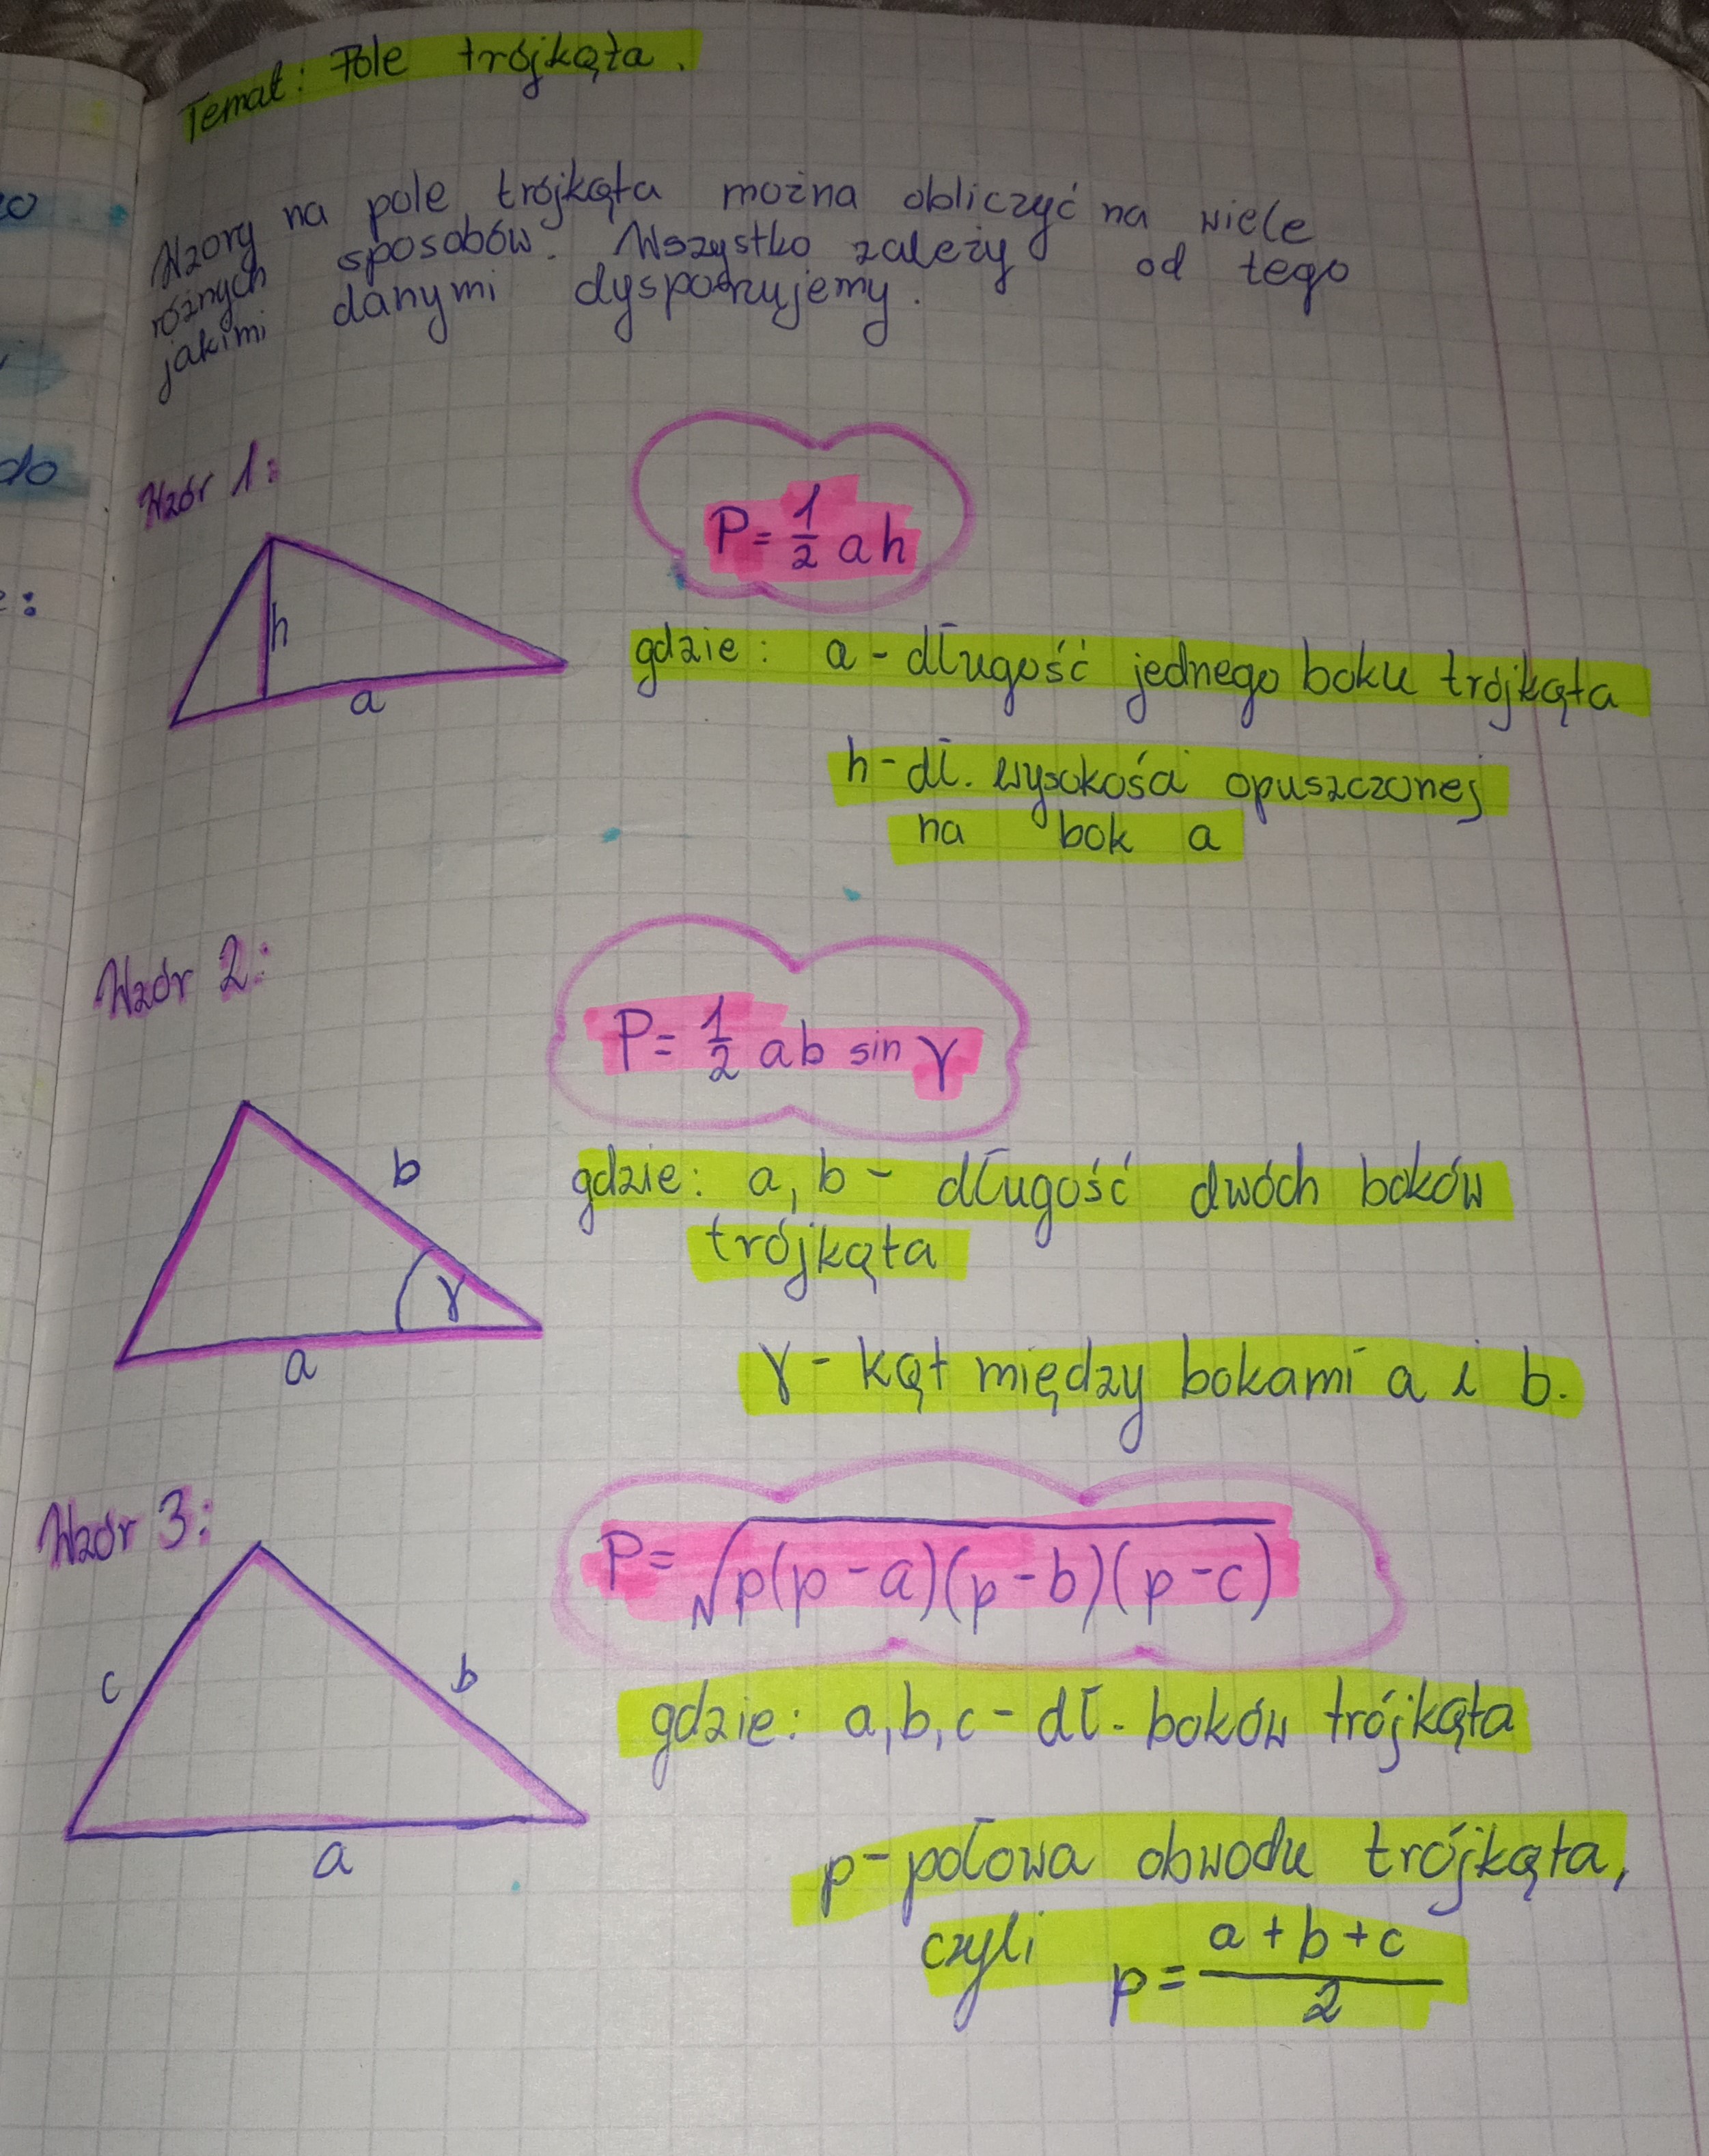 Temat: Pole trójkąta.
Wzory na pole trójkąta można obliczyć na wiele
różnych sposobów. Wszystko zależy od tego
jakimi danymi dysponujemy.
Wzór 1:
P = 1/2 ah
h
a
gdzie: a - długość jednego boku trójkąta
h - dł. wysokości opuszczonej
na bok a
Wzór 2:
P = 1/2 ab sin γ
b
γ
a
gdzie: a, b - długość dwóch boków
trójkąta
γ - kąt między bokami a i b.
Wzór 3:
P = √p(p-a)(p-b)(p-c)
c
b
a
gdzie: a, b, c - dł. boków trójkąta
p - połowa obwodu trójkąta,
czyli p = a+b+c/2
do